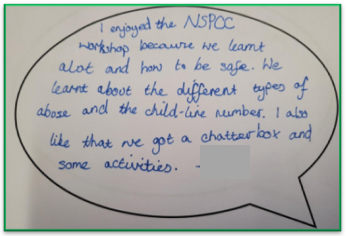 I enjoyed the NSPCC
workshop because we learnt
alot and how to be safe. We
learnt about the different types of
abuse and the child-line number. I also
like that we got a chatterbox and
some activities. -